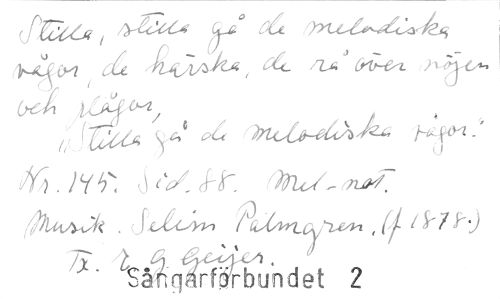 Stilla, stilla gå de melodiska
vågor, de härska, de rå över nöjen
och plågor,
"Stilla gå de melodiska vågor."
Nr. 145. Sid. 88. Mel-not.
Musik. Selim Palmgren, (f 1878.)
Tx. E G Geijer.
Sångarförbundet 2